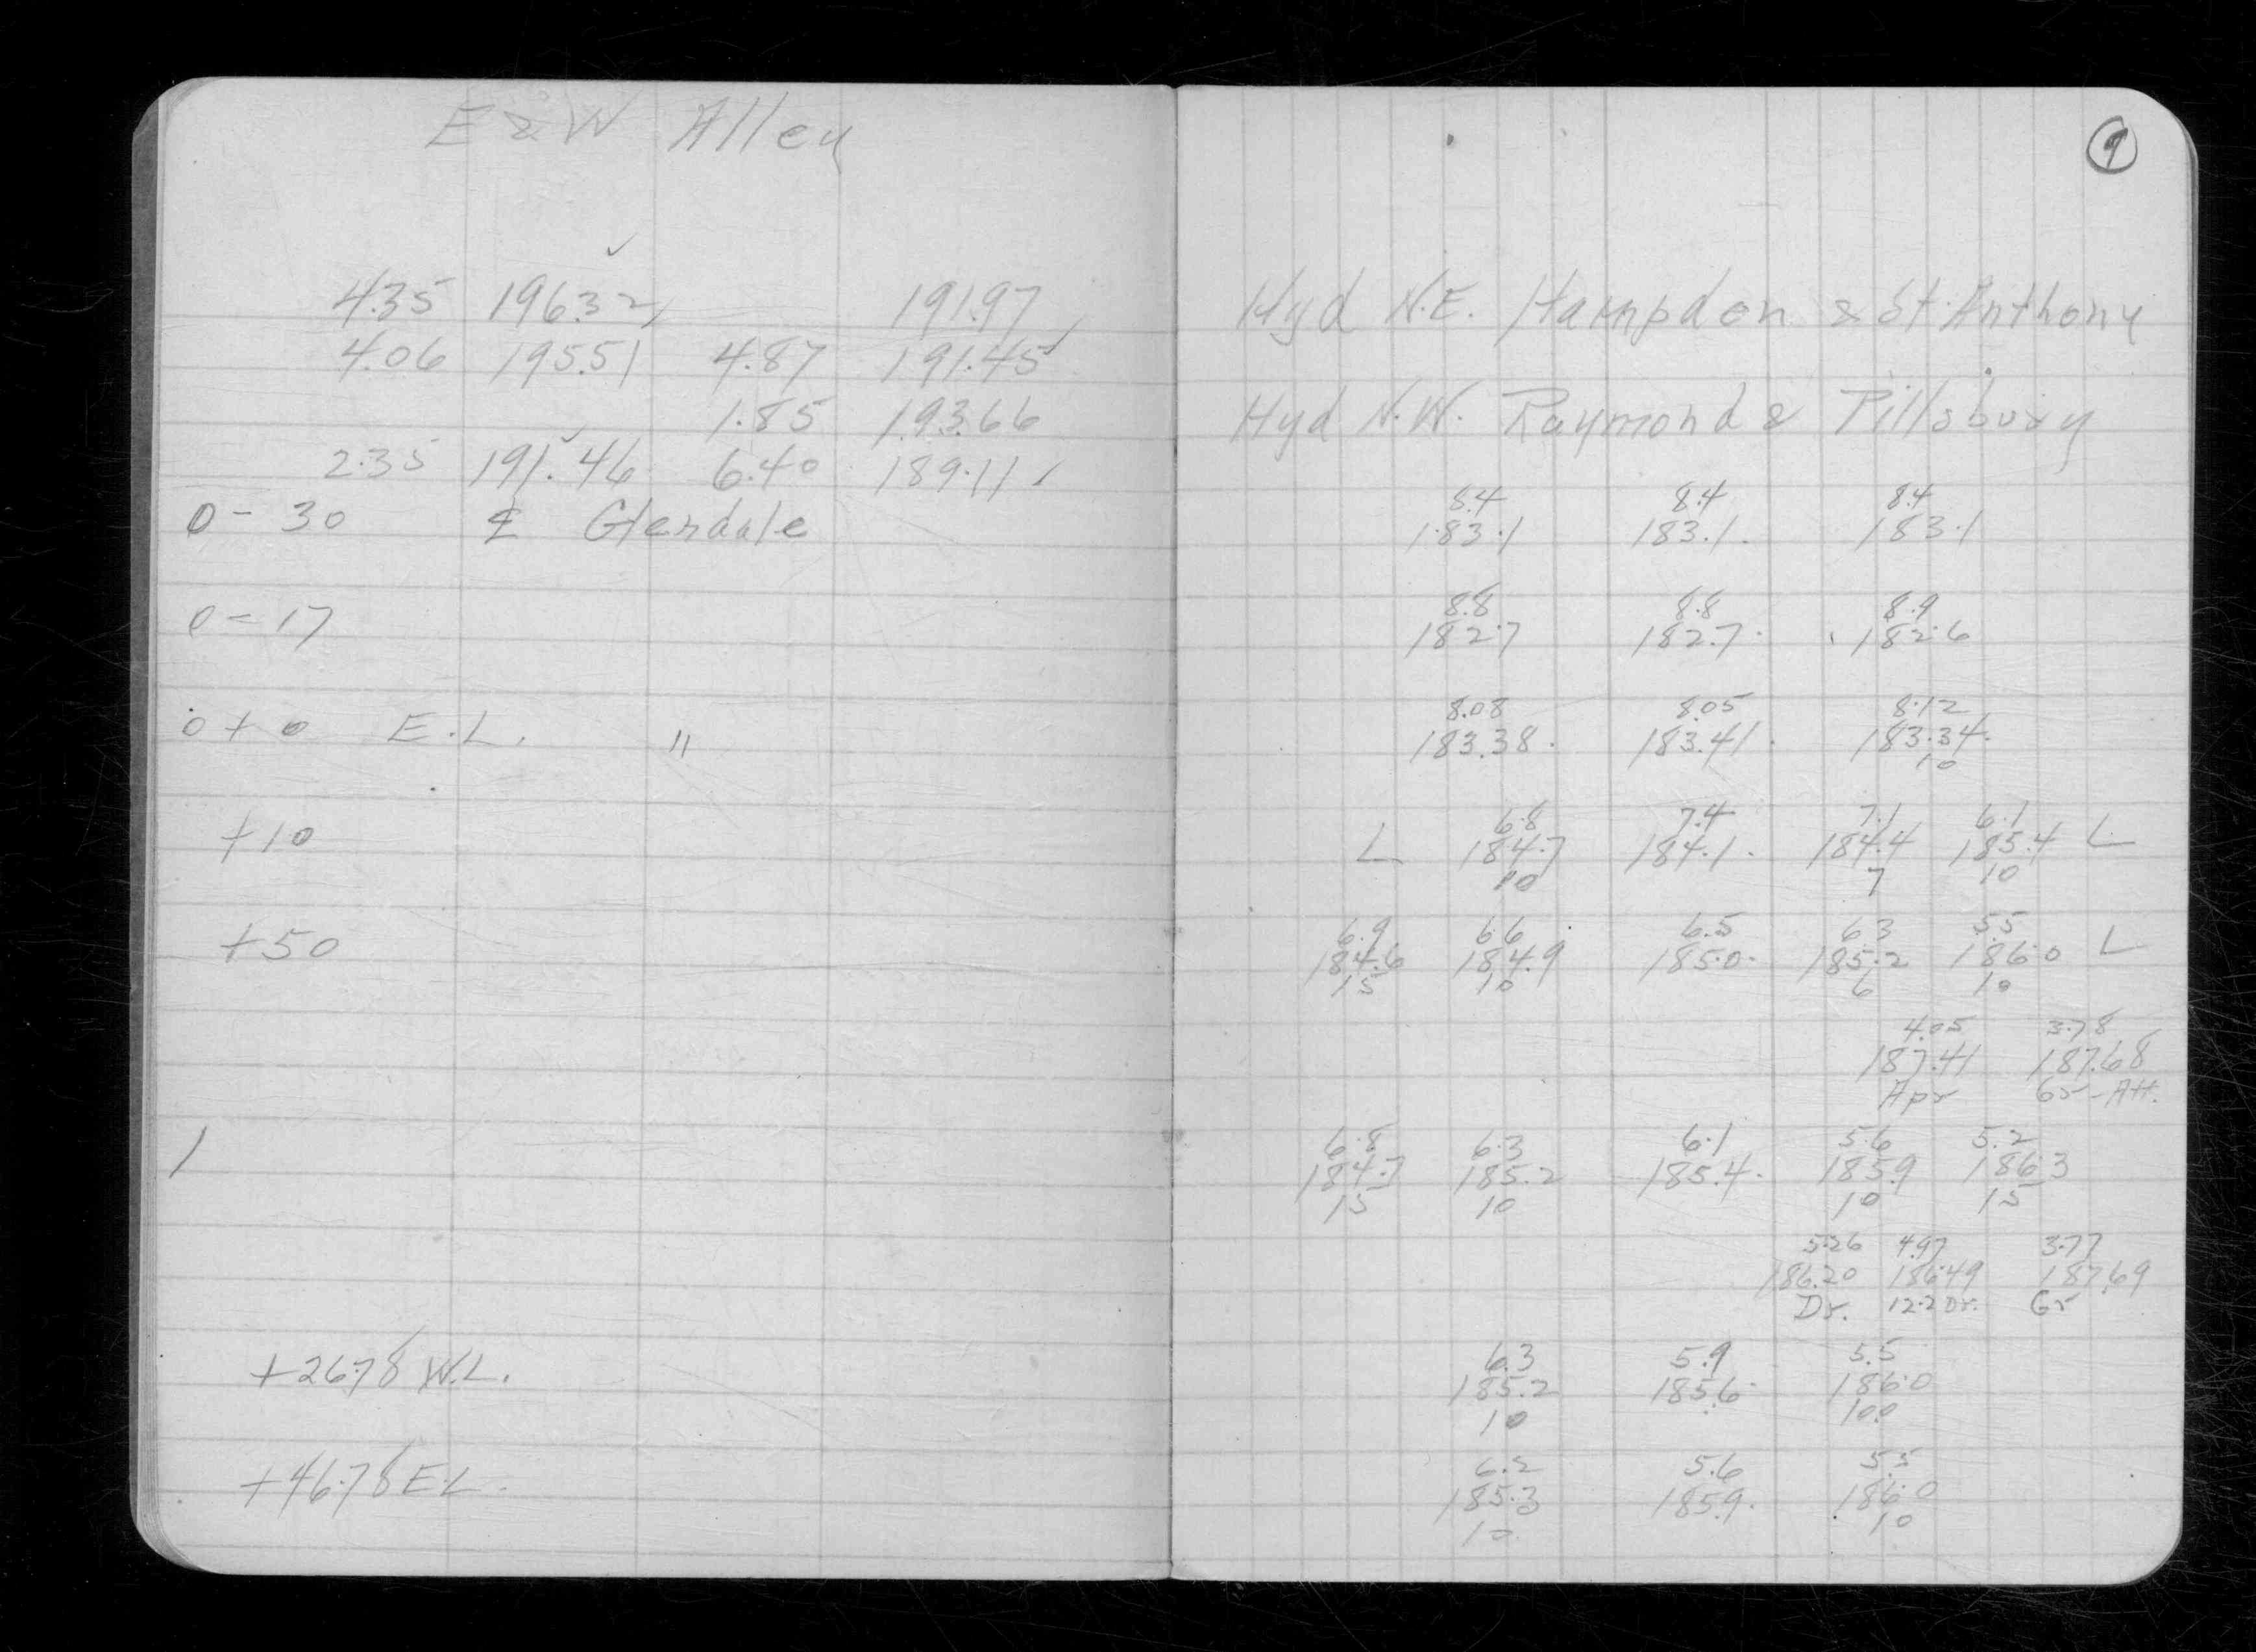 E & W Alley
4.35 196.32 191.97
4.06 195.51 4.87 191.45
1.85 193.66
2.35 191.46 6.40 189.11
0 - 30 ℄ Glendale
0 = 17
0 + 0 E.L. "
+10
+50
1
+26.78 W.L.
+46.78 E.L.
9
Hyd N.E. Hampden & St. Anthony
Hyd N.W. Raymond & Pillsbury
8.4 8.4 8.4
183.1 183.1 183.1
8.8 8.8 8.9
182.7 182.7 182.6
8.08 8.05 8.12
183.38 183.41 183.34
10
6.8 7.4 7.1 6.1
L 184.7 184.1 184.4 185.4 L
10 7 10
6.9 6.6 6.5 6.3 5.5
184.6 184.9 185.0 185.2 186.0 L
15 10 6 10
4.05 3.78
187.41 187.68
Apr Gr-Att.
6.8 6.3 6.1 5.6 5.2
184.7 185.2 185.4 185.9 186.3
15 10 10 15
5.26 4.97 3.77
186.20 186.49 187.69
Dr. 12.2 Dr. Gr
6.3 5.9 5.5
185.2 185.6 186.0
10 10.0
6.2 5.6 5.5
185.3 185.9 186.0
10 10